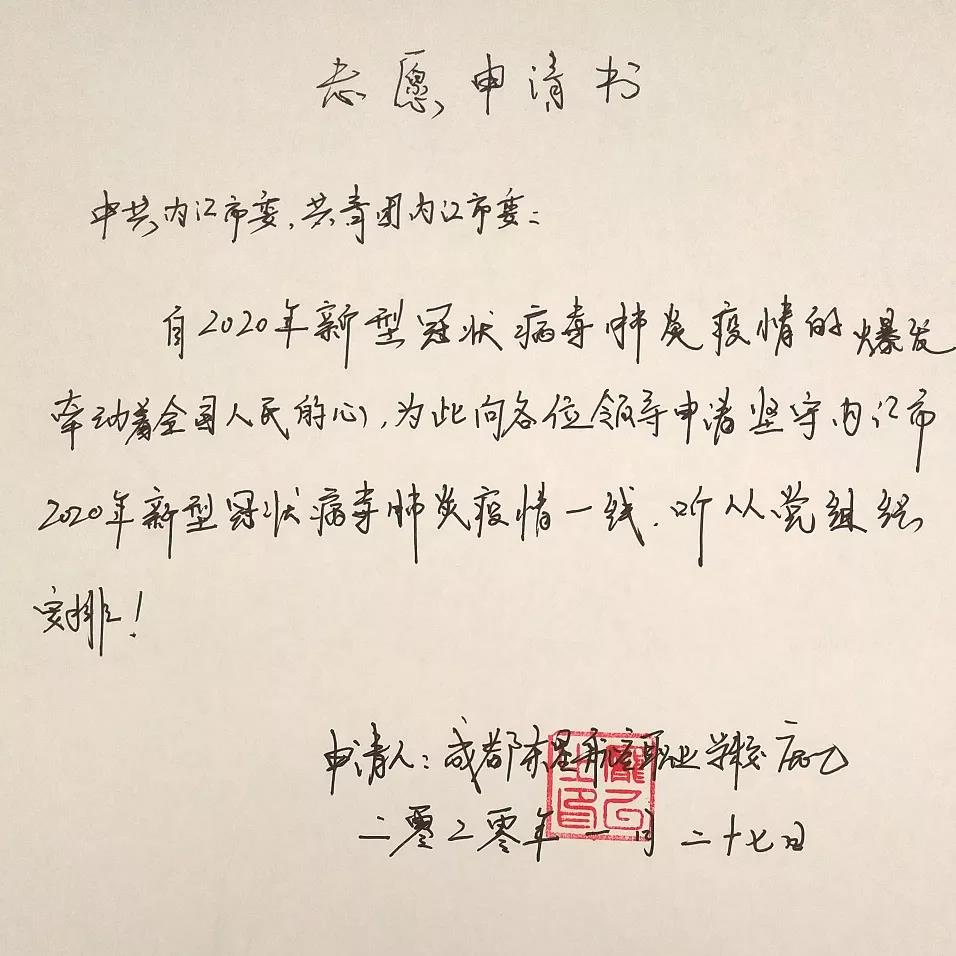 志愿申请书
中共内江市委、共青团内江市委：
自2020年新型冠状病毒肺炎疫情的爆发
牵动着全国人民的心，为此向各位领导申请坚守内江市
2020年新型冠状病毒肺炎疫情一线，听从党组织
安排！
申请人：成都东星航空职业学校
二零二零年一月二十七日